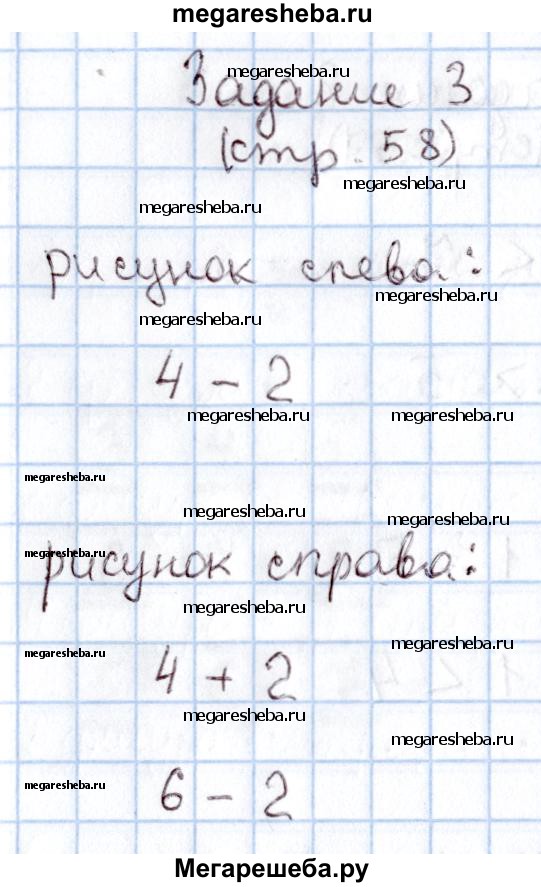 megaresheba.ru
megaresheba.ru
Задание 3
(стр. 58)
megaresheba.ru
megaresheba.ru
рисунок слева:
megaresheba.ru
megaresheba.ru
4 - 2
megaresheba.ru megaresheba.ru
megaresheba.ru
megaresheba.ru
megaresheba.ru
megaresheba.ru
рисунок справа:
megaresheba.ru
megaresheba.ru
megaresheba.ru
4 + 2
megaresheba.ru
megaresheba.ru
megaresheba.ru
6 - 2
Мегарешеба.ру